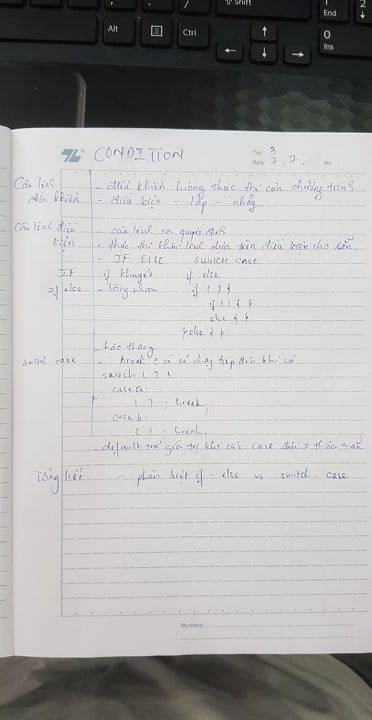 Shift
1
End
2
Alt
Ctrl
0
Ins
TL CONDITION
Thứ 3
Ngày 7.7. No.
Câu lệnh - điều khiển luồng thực thi của chương trình
điều khiển - điều kiện - lặp - nhảy
Câu lệnh điều - câu lệnh ra quyết định
kiện - thực thi khối lệnh dựa trên điều kiện cho sẵn.
- IF ELSE SWITCH CASE
IF if khuyết - if else
if else - lồng nhau if ( ) {
if ( ) { }
else { }
}else { }
- bậc thang
switch case - break : có sẽ chạy tiếp đến khi có
switch ( ) {
case a:
( ) ; break,
case b:
( ) . break,
- default trả giá trị khi các case đều thỏa mãn
Tổng kết - phân biệt if - else vs switch - case
My notes: